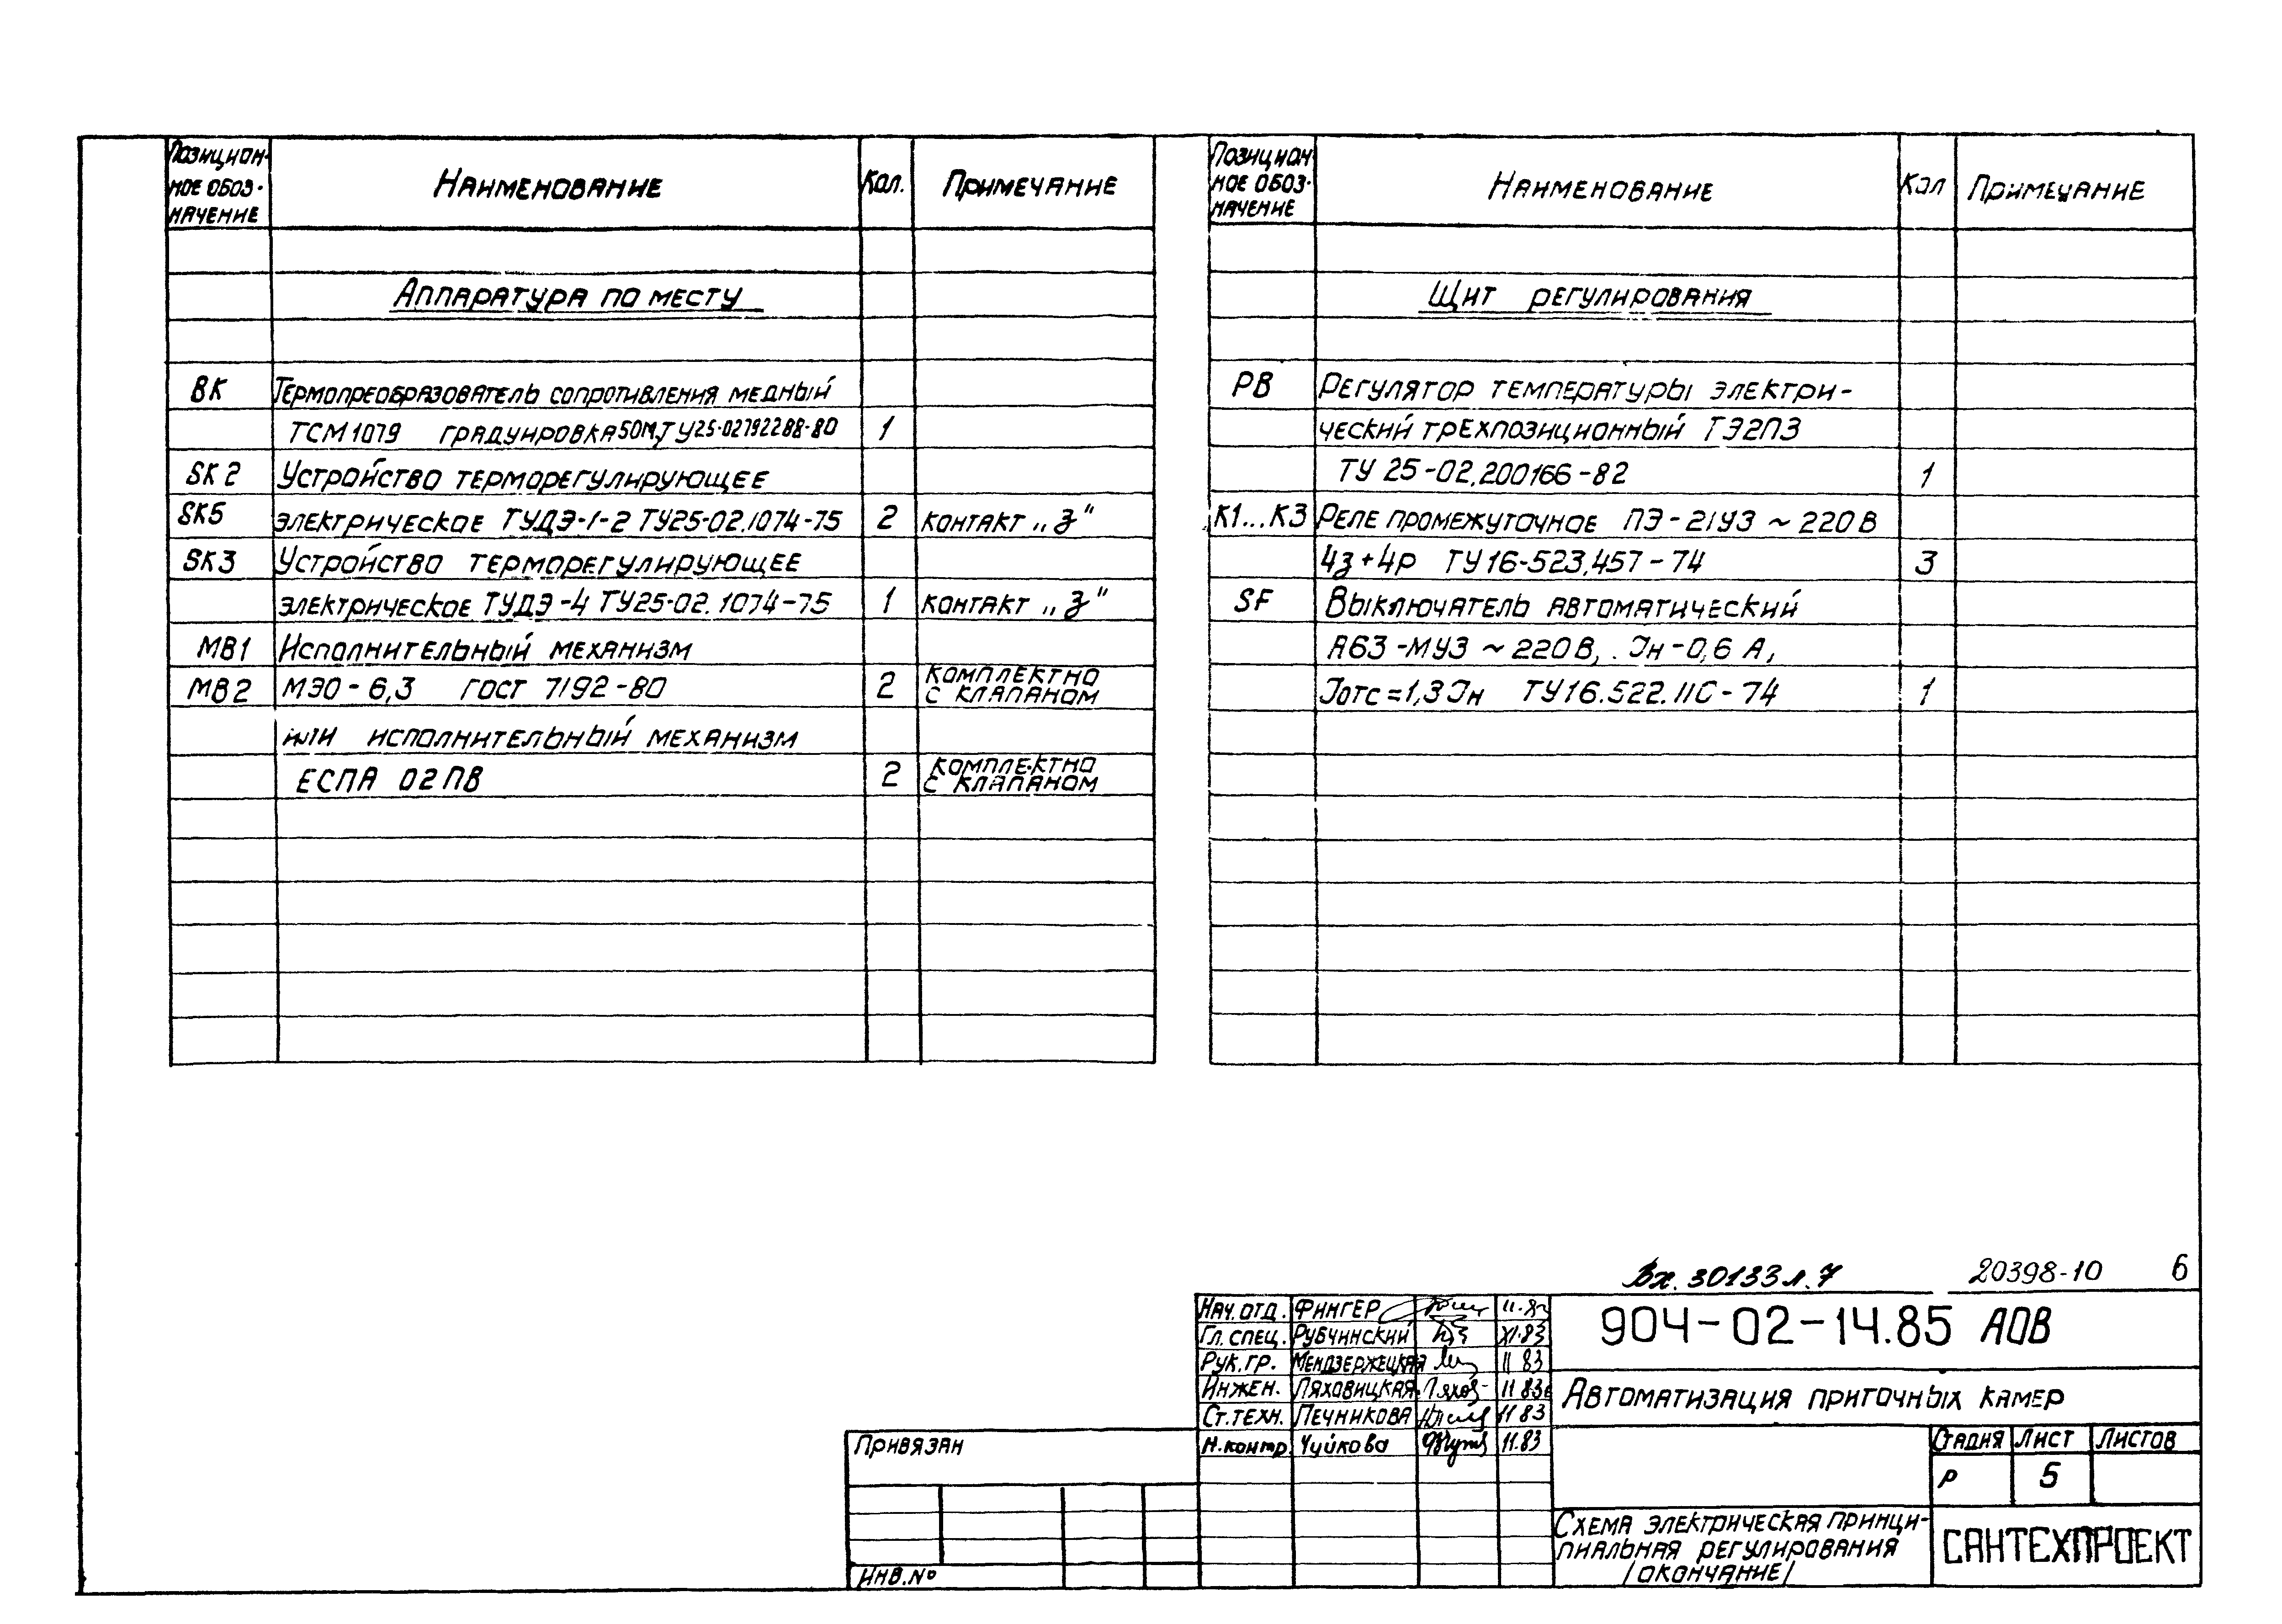 Позицион-
ное обоз-
начение
Наименование
Кол.
Примечание
Аппаратура по месту
ВК Термопреобразователь сопротивления медный
ТСМ 1079 градуировка 50М, ТУ25-02792288-80 1
SK2 Устройство терморегулирующее
SK5 электрическое ТУДЭ-1-2 ТУ25-02.1074-75 2 контакт „з"
SK3 Устройство терморегулирующее
электрическое ТУДЭ-4 ТУ25-02.1074-75 1 контакт „з"
МВ1 Исполнительный механизм
МВ2 МЭО-6,3 ГОСТ 7192-80 2 комплектно
с клапаном
или исполнительный механизм
ЕСПА 02ПВ 2 комплектно
с клапаном
Позицион-
ное обоз-
начение
Наименование
Кол
Примечание
Щит регулирования
РВ Регулятор температуры электри-
ческий трехпозиционный ТЭ2П3
ТУ 25-02.200166-82 1
К1...К3 Реле промежуточное ПЭ-21У3 ~220В
4з+4р ТУ16-523.457-74 3
SF Выключатель автоматический
А63-МУ3 ~220В, Iн-0,6 А,
Iотс=1,3Iн ТУ16.522.110-74 1
Вх. 30133 л. 7
20398-10
6
Нач.отд. Фингер
Гл.спец. Рубчинский XI.83
Рук.гр. Мендзержецкая 11 83
Инжен. Ляховицкая 11 83
Ст.техн. Печникова 11 83
Н.контр. Чуйкова 11.83
904-02-14.85 АОВ
Автоматизация приточных камер
Стадия Лист Листов
Р 5
Схема электрическая принци-
пиальная регулирования
/окончание/
САНТЕХПРОЕКТ
Привязан
Инв.№